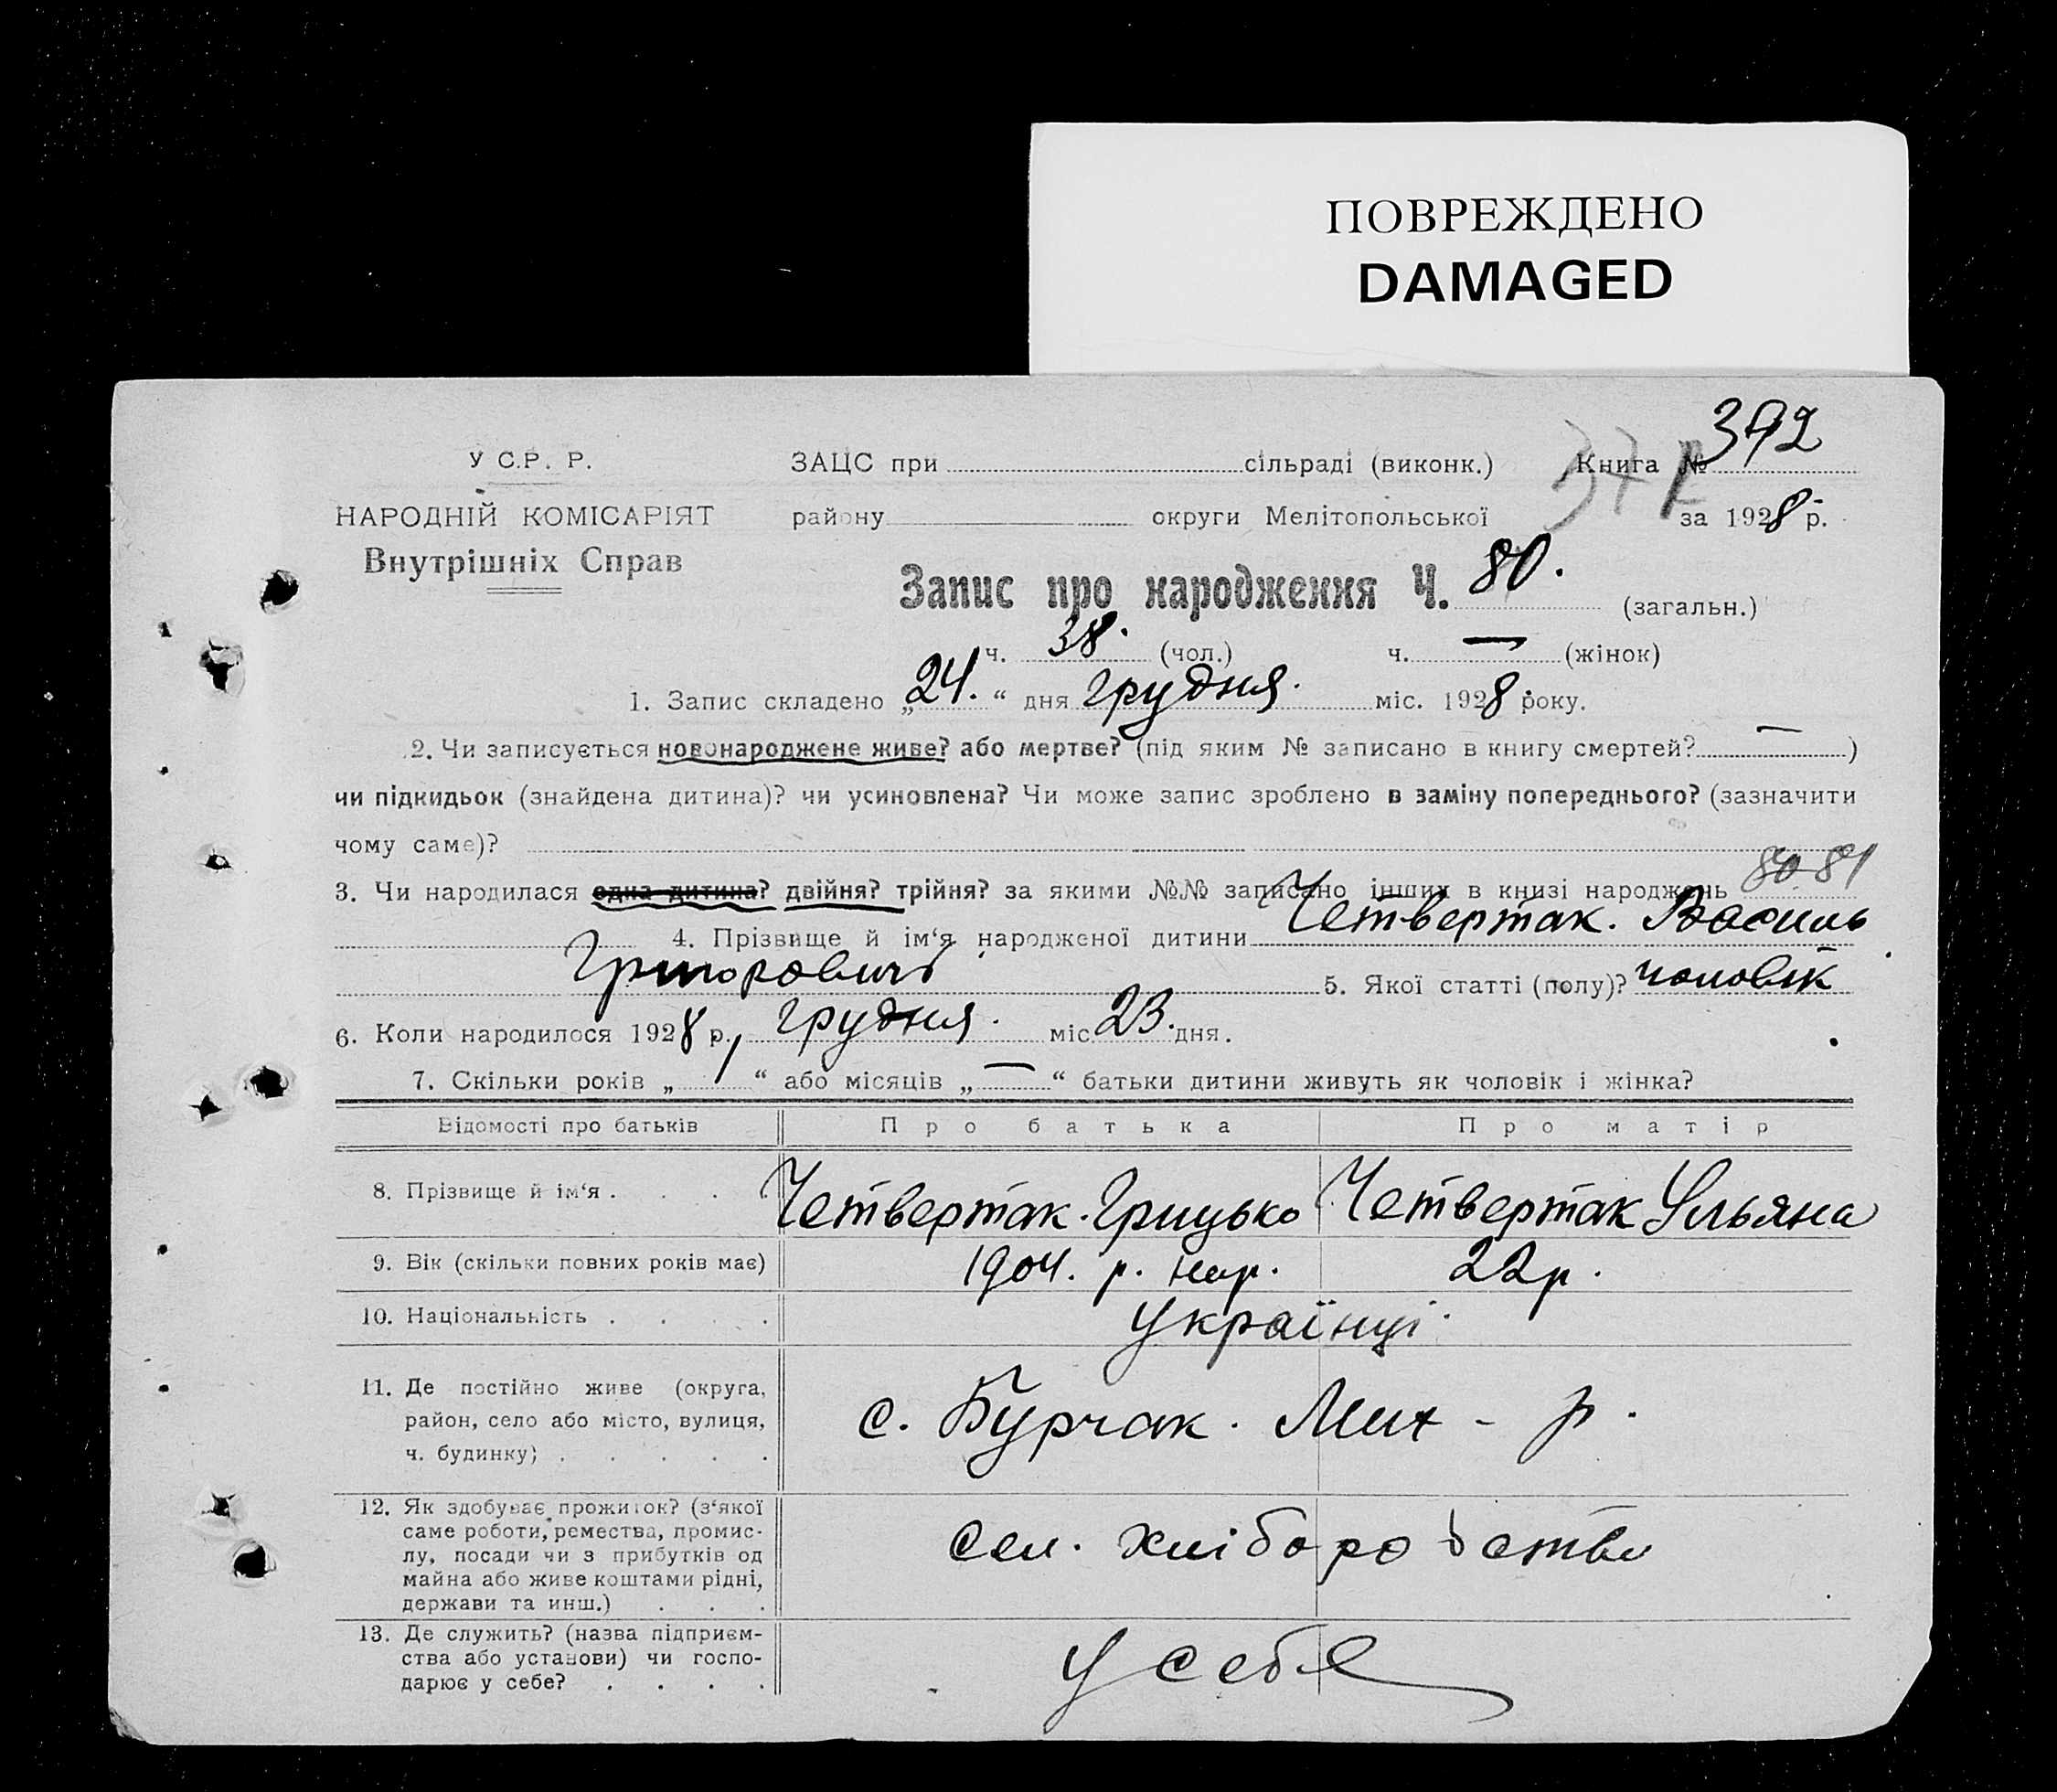 ПОВРЕЖДЕНО
DAMAGED
У С.Р. Р. ЗАЦС при сільраді (виконк.) Книга № 372
НАРОДНІЙ КОМІСАРІЯТ району округи Мелітопольської за 1928 р.
Внутрішніх Справ
Запис про народження Ч. 80. (загальн.)
ч. 38. (чол.) ч. — (жінок)
1. Запис складено „24.“ дня грудня. міс. 1928 року.
2. Чи записується новонароджене живе? або мертве? (під яким № записано в книгу смертей? — )
чи підкидьок (знайдена дитина)? чи усиновлена? Чи може запис зроблено в заміну попереднього? (зазначити
чому саме)?
3. Чи народилася одна дитина? двійня? трійня? за якими №№ записано інших в книзі народжень 80 81
4. Прізвище й ім‘я народженої дитини Четвертак. Василь
Григорович 5. Якої статті (полу)? чоловік
6. Коли народилося 1928 р. грудня. міс. 23. дня.
7. Скільки років „ 1 “ або місяців „ — “ батьки дитини живуть як чоловік і жінка?
Відомості про батьків Про батька Про матір
8. Прізвище й ім‘я . . . . Четвертак. Грицько Четвертак Ульяна
9. Вік (скільки повних років має) 1904. р. нар. 22 р.
10. Національність . . . . Українці.
11. Де постійно живе (округа,
район, село або місто, вулиця,
ч. будинку) . . . . .
с. Бурчак. Мих - р.
12. Як здобуває прожиток? (з‘якої
саме роботи, ремества, промис-
лу, посади чи з прибутків од
майна або живе коштами рідні,
держави та инш.) . . .
Сел. хліборобство
13. Де служить? (назва підприєм-
ства або установи) чи госпо-
дарює у себе? . . . .
У себе